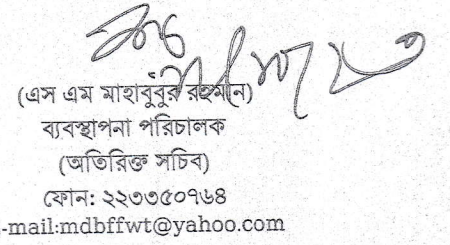 (এস এম মাহাবুবুর রহমান)
ব্যবস্থাপনা পরিচালক
(অতিরিক্ত সচিব)
ফোন: ২২৩৩৫০৭৬৪
-mail:mdbffwt@yahoo.com